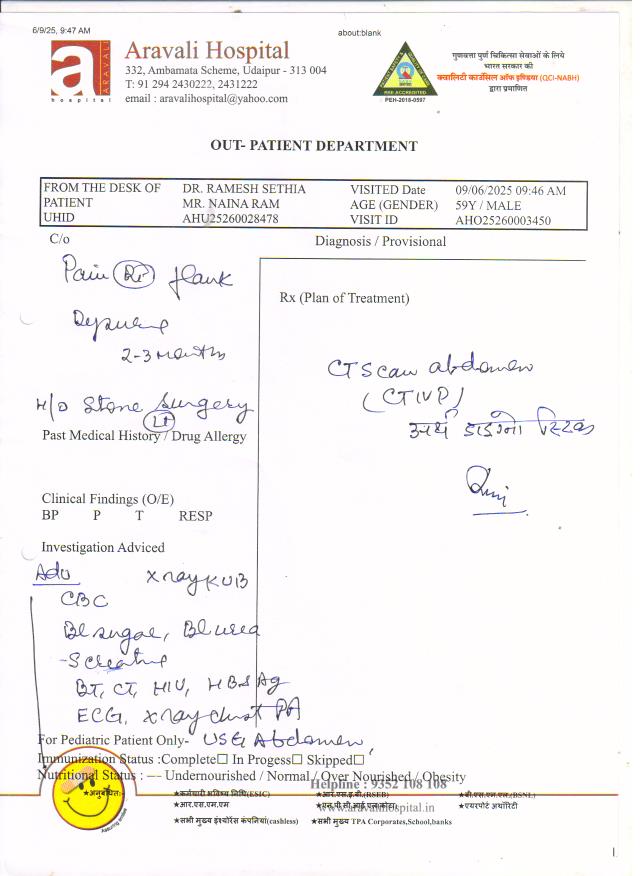 6/9/25, 9:47 AM
about:blank
ARAVALI
hospital
Aravali Hospital
332, Ambamata Scheme, Udaipur - 313 004
T: 91 294 2430222, 2431222
email : aravalihospital@yahoo.com
PRE ACCREDITED
PEH-2018-0597
गुणवत्ता पुर्ण चिकित्सा सेवाओं के लिये
भारत सरकार की
क्वालिटी काउंसिल ऑफ इण्डिया (QCI-NABH)
द्वारा प्रमाणित
OUT- PATIENT DEPARTMENT
FROM THE DESK OF DR. RAMESH SETHIA VISITED Date 09/06/2025 09:46 AM
PATIENT MR. NAINA RAM AGE (GENDER) 59Y / MALE
UHID AHU25260028478 VISIT ID AHO25260003450
C/o
Diagnosis / Provisional
Pain Rt flank
2-3 months
H/O Stone Surgery
Lt
Past Medical History / Drug Allergy
Rx (Plan of Treatment)
CT Scan abdomen
(CT IVP)
अर्थ डाइग्नोस्टिक
Clinical Findings (O/E)
BP P T RESP
Investigation Adviced
Adv X ray KUB
CBC
Bl sugar, Bl urea
S creatine
BT, CT, HIV, HBS Ag
ECG, X ray chest PA
USG Abdomen,
For Pediatric Patient Only-
Immunization Status :Complete☐ In Progess☐ Skipped☐
Nutritional Status : --- Undernourished / Normal / Over Nourished / Obesity
Helpline : 9352 108 108
★अनुबंधित:-
★कर्मचारी भविष्य निधि(ESIC) ★आर.एस.ई.बी.(RSEB) ★बी.एस.एन.एल.(BSNL)
★आर.एस.एम.एम ★एयरपोर्ट अथॉरिटी
www.aravalihospital.in
★सभी मुख्य इंश्योरेंस कंपनियां(cashless) ★सभी मुख्य TPA Corporates,School,banks